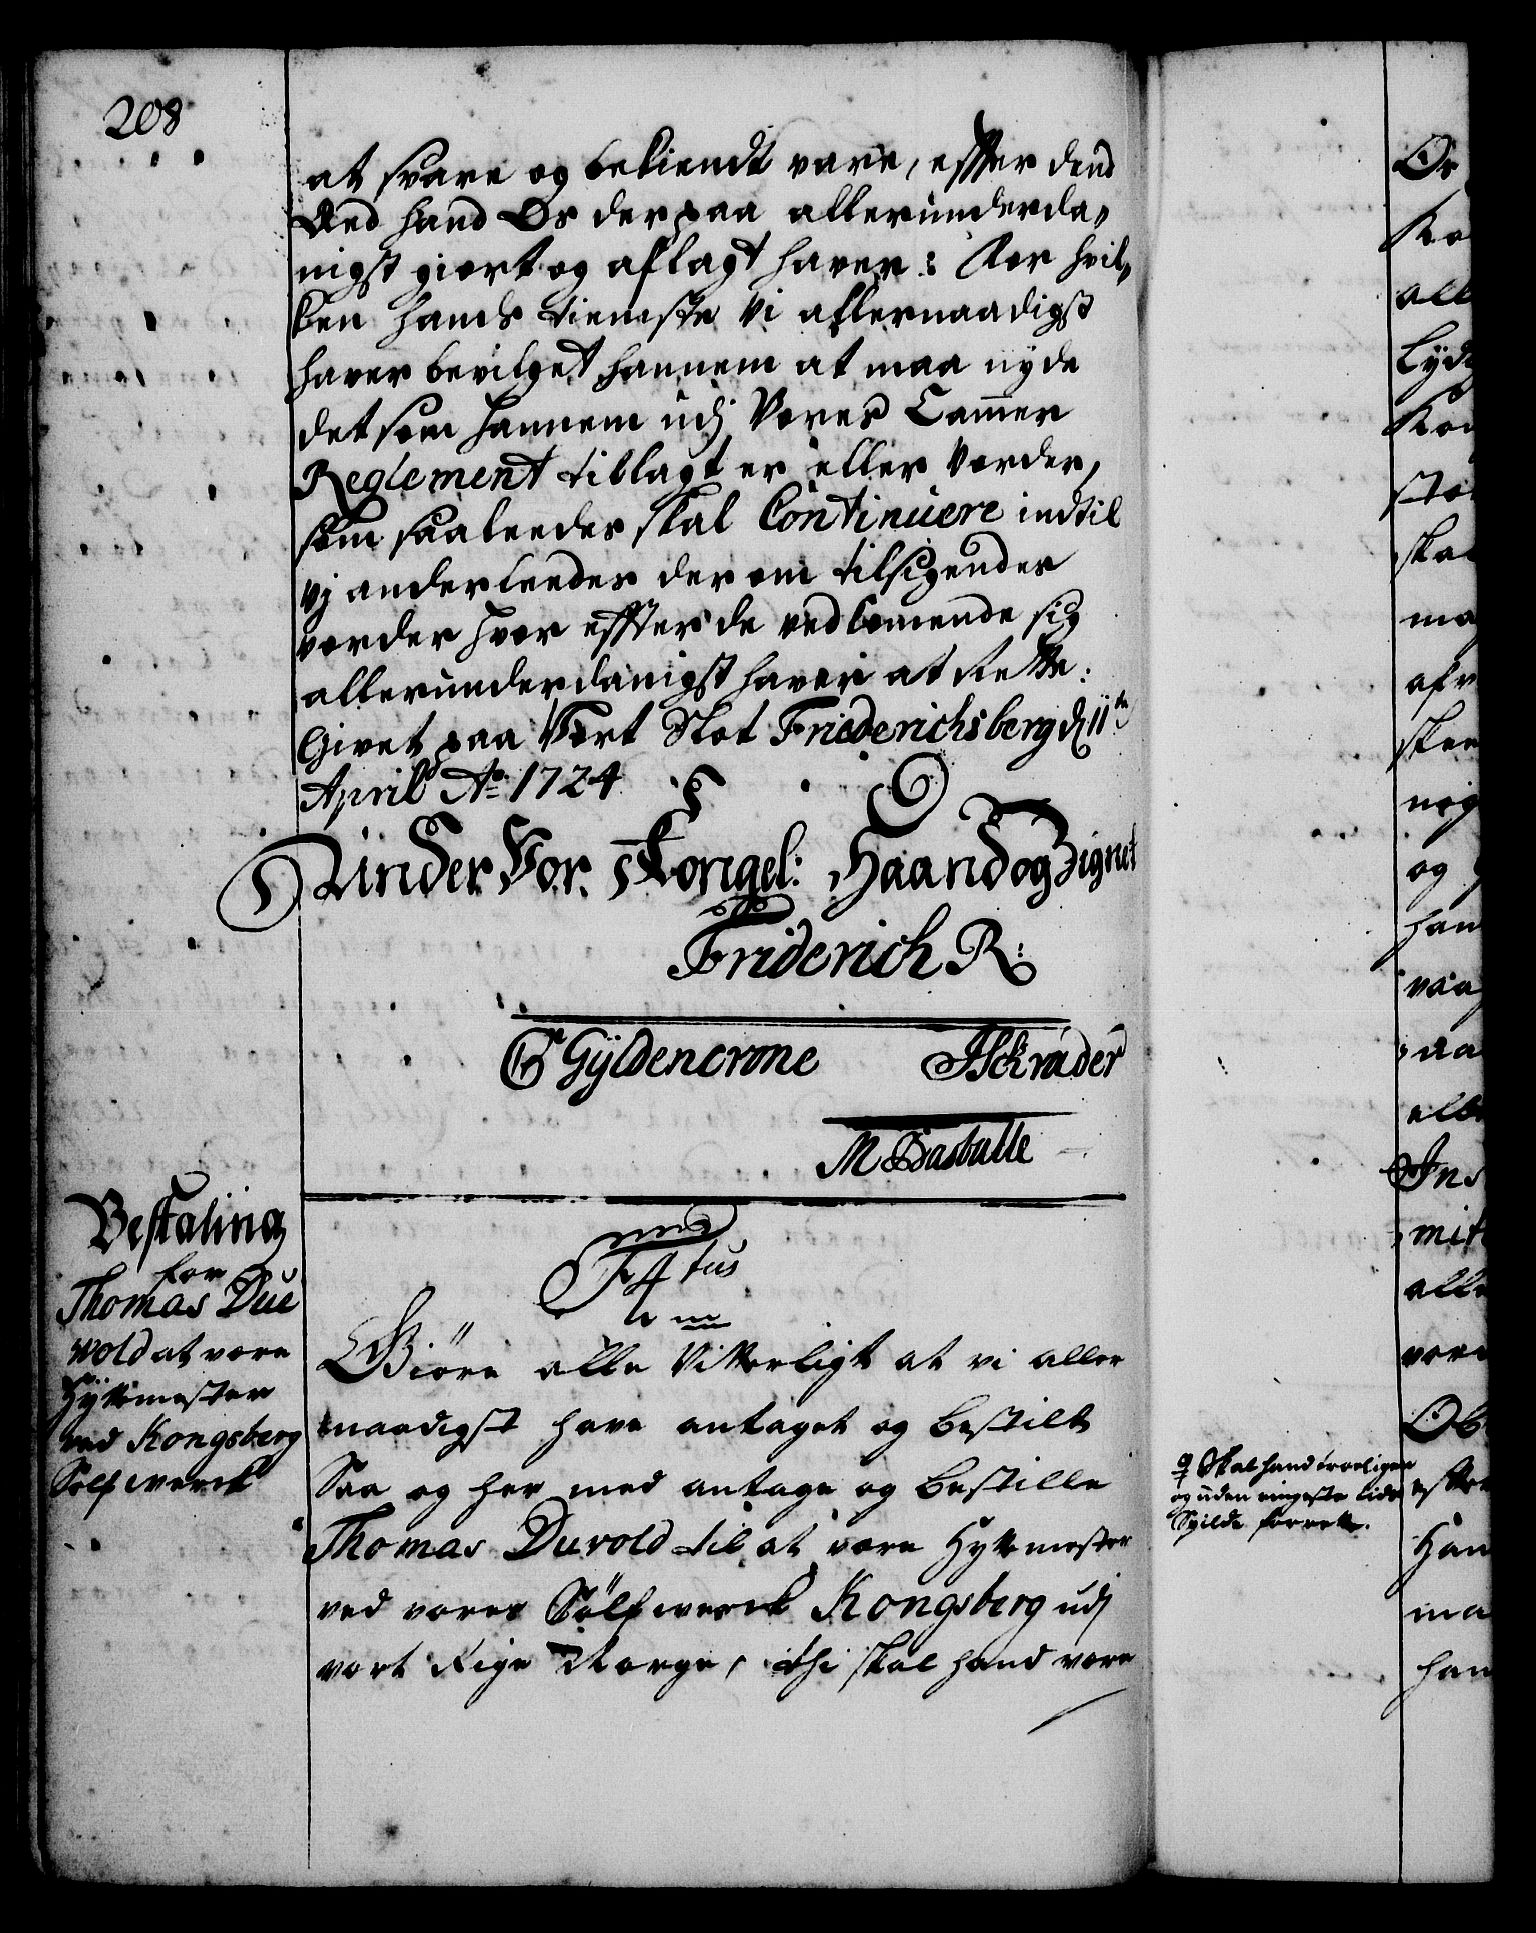 208
at svare og bekiendt være, effter dend
Æed hand Os der paa allerunderda„
nigst giort og aflagt haver: For hvil„
ken hands tieneste Vi allernaadigst
haver bevilget hannem at maa nyde
det som hannem udj Vores Cammer
Reglement tillagt er eller vorder,
som saaleedes skal Continuere indtil
vj anderleedes der om tilsigendes
vorder hvor effter de vedkomende sig
allerunderdanigst haver at Rette.
Givet paa Vort Slot Friderichsberg d 11te
April Ao 1724
Under Vor Kongel: Haand og Zignet
Friderich R:
G Gyldencrone JSchrader
M Basballe
Bestaling
for
Thomas Due
wold at være
Hyttemester
ved Kongsberg
Sølfwerck
F4tus
Giøre alle Vitterligt at vi aller
naadigst have antaget og bestilt
Saa og her med antage og bestille
Thomas Duvold til at være Hyttemester
ved vores Sølfwerck Kongsberg udj
vort Rige Norge, thi skal hand være
Skal hand troeligen
og uden ringeste tids
Spilde forrette.
Os
Ko
all
lyd
Kon
skal
afv
nog
og
han
vaa
Ins
mit
alle
være
Ob
Han
ma
han